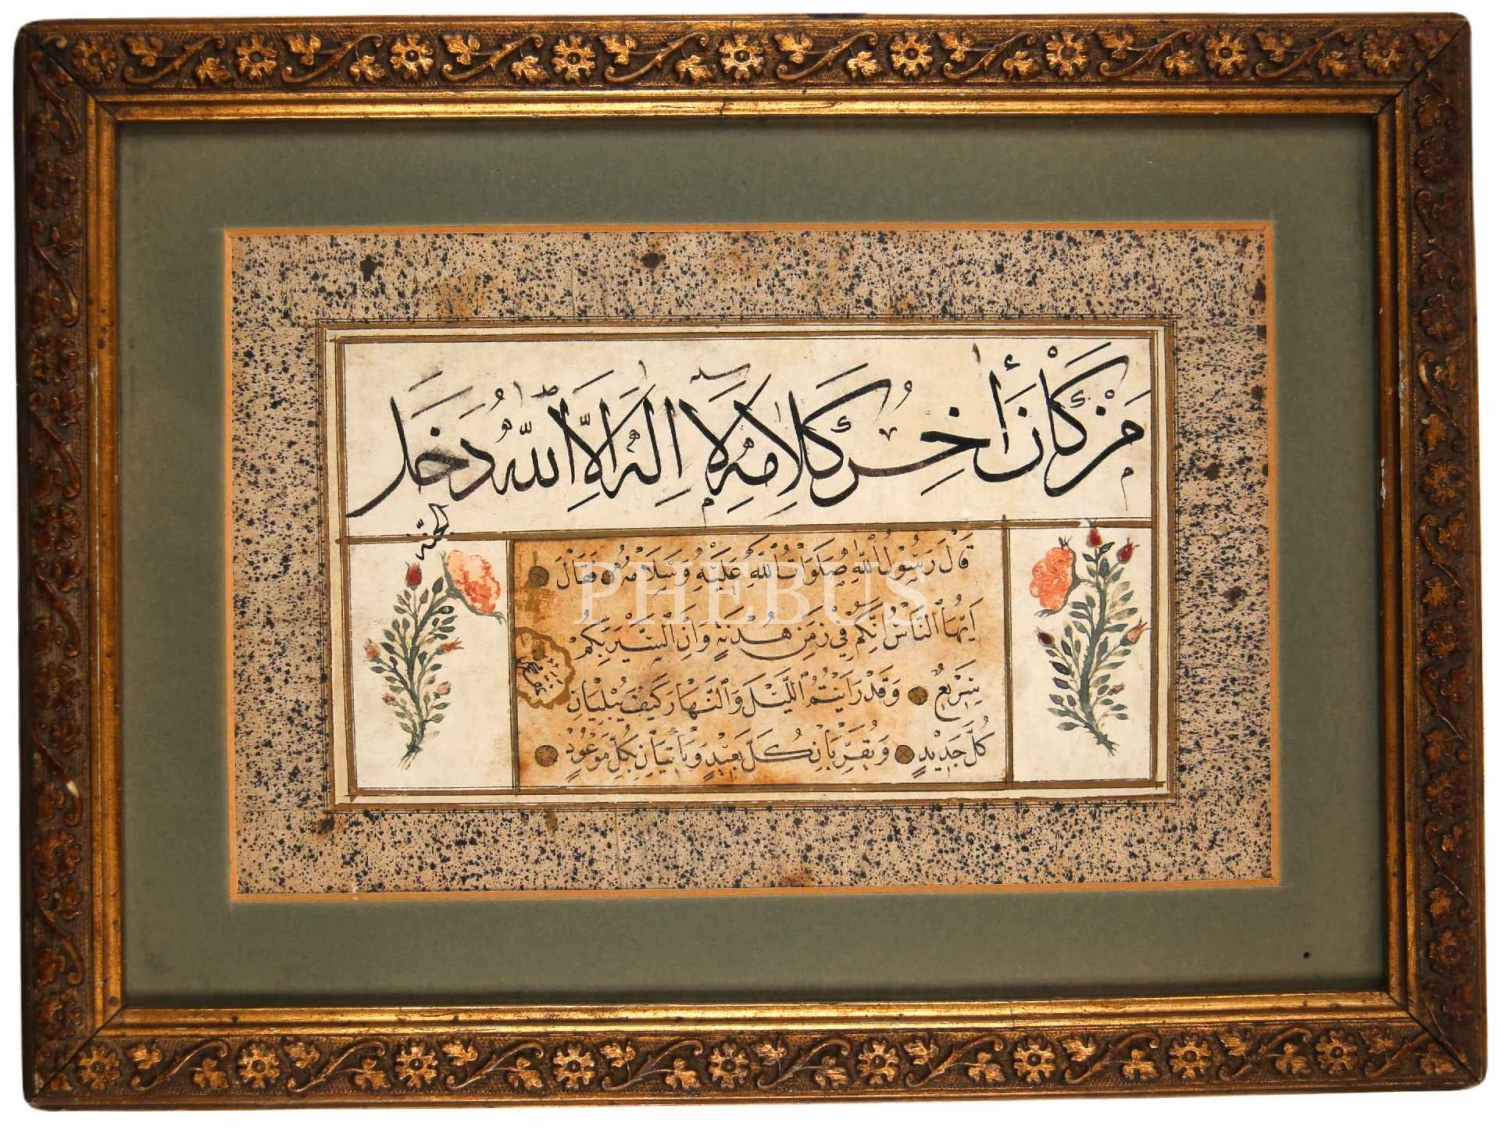 مَنْ كَانَ أٰخِرُ كَلَامِهِ لَا اِلٰهَ اِلَّا اللّٰهُ دَخَلَ
الجنّة
قَالَ رَسُولُ اللّٰهِ صَلَوَاتُ اللّٰهِ عَلَيْهِ وَسَلَامُهُ فَقَالَ
اَيُّهَا النَّاسُ اِنَّكُمْ فِي زَمَنِ هُدْنَةٍ وَاِنَّ السَّيْرَ بِكُمْ
سَرِيعٌ وَقَدْ رَاَيْتُمُ اللَّيْلَ وَالنَّهَارَ كَيْفَ يُبْلِيَانِ
كُلَّ جَدِيدٍ وَيُقَرِّبَانِ كُلَّ بَعِيدٍ وَيَأْتِيَانِ بِكُلِّ مَوْعُودٍ
PHEBUS